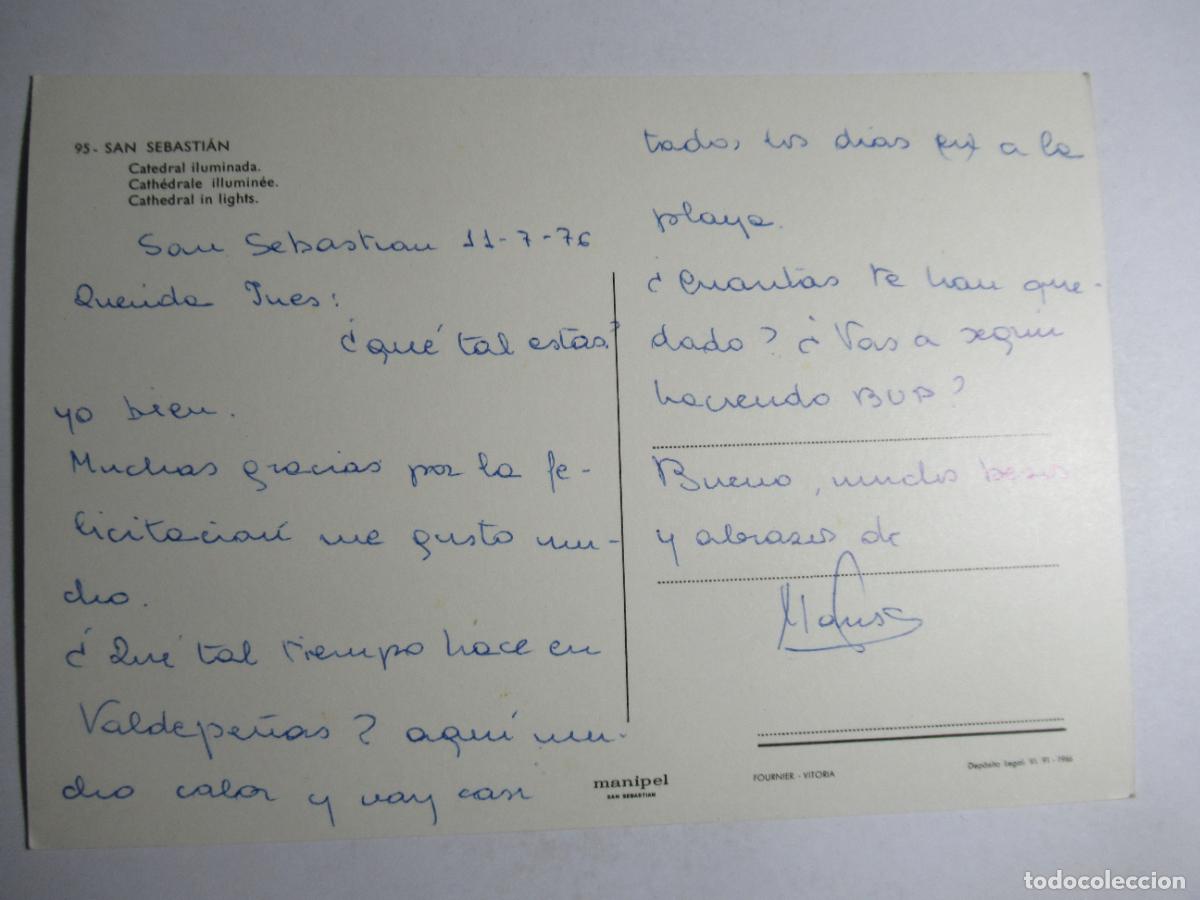 95 - SAN SEBASTIÁN
Catedral iluminada.
Cathédrale illuminée.
Cathedral in lights.
San Sebastian 11-7-76
Querida Ines:
¿qué tal estás?
yo bien.
Muchas gracias por la fe-
licitacion me gusto mu-
cho.
¿Qué tal tiempo hace en
Valdepeñas? aquí mu-
cho calor y voy casi
todos los dias a la
playa.
¿Cuantas te han que-
dado? ¿Vas a seguir
haciendo BUP?
Bueno, muchos besos
y abrazos de
manipel
SAN SEBASTIAN
FOURNIER - VITORIA
Depósito Legal, VI. 91 - 1966
todocoleccion